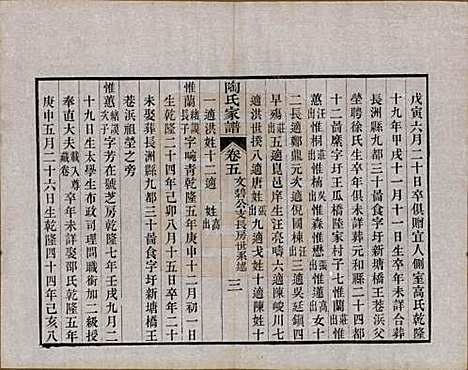 戊寅六月二十日卒俱贈宜人側室高氏乾隆
十九年甲戌十一月十一日生卒年未詳合葬
長洲縣九都三十啚食字圩新塘橋王巷浜父
塋聘徐氏生卒年未詳葬元和縣二十四都
十二啚麋字圩王瓜橋陸家村子七惟蘭出莊
惠出莊惟桐出惟楠出惟楙惟蓮出高女十
二長適鄭龍元次適倪國棟出三適吳廷鎮四
早殤出莊五適崑邑庠生汪亮時六適陳峻川七
適洪世揆八適唐姓出九適戈姓十適陳姓十
一適洪姓十二適 姓出高
陶氏家譜 卷五 文穆公支長房世系總 三
惟蘭緒謨子字畹青乾隆二十年十二月初一日
生乾隆二十四年己卯八月十五日卒年二十
未娶葬長洲縣九都三十啚食字圩新塘橋王
巷浜祖塋之旁
惟蕙緒謨子字芳在號芝房乾隆七年壬戌九月二
十九日生太學生布政司理問職銜加二級授
奉直大夫載入尊藏卷卒年未詳娶邵氏乾隆五年
庚申五月二十六日生乾隆四十四年己亥八